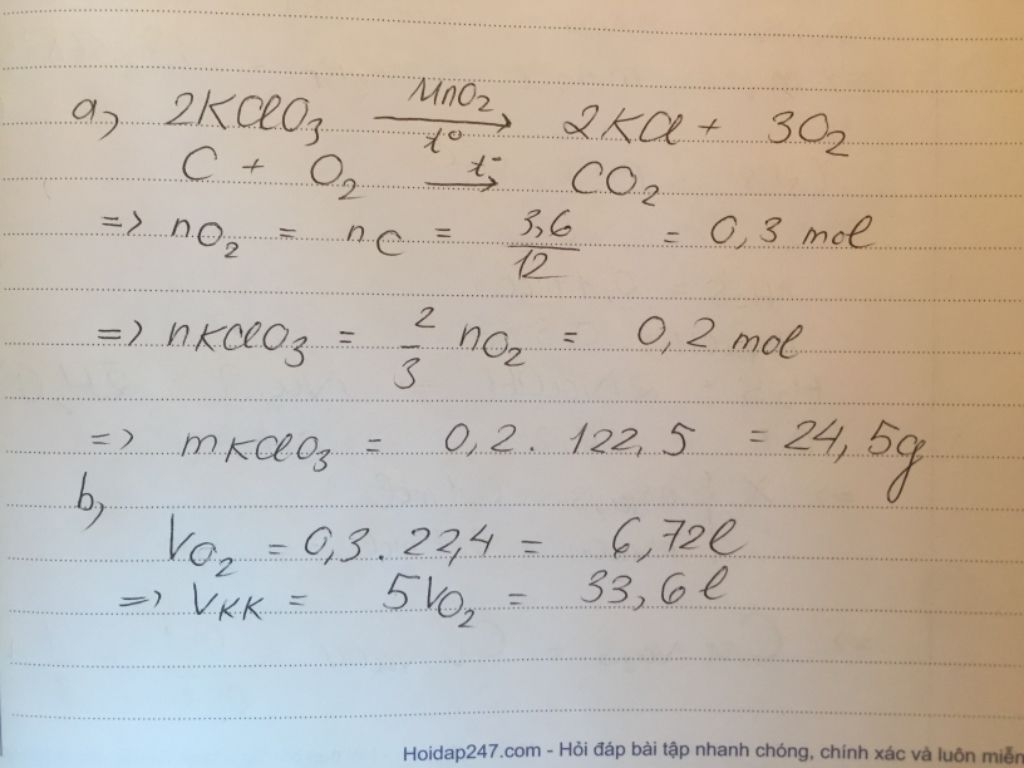 a, 2KClO3 MnO2 t° → 2KCl + 3O2
C + O2 t° → CO2
=> nO2 = nC = 3,6/12 = 0,3 mol
=> nKClO3 = 2/3 nO2 = 0,2 mol
=> mKClO3 = 0,2 . 122,5 = 24,5g
b,
VO2 = 0,3 . 22,4 = 6,72l
=> VKK = 5VO2 = 33,6l
Hoidap247.com - Hỏi đáp bài tập nhanh chóng, chính xác và luôn miễn